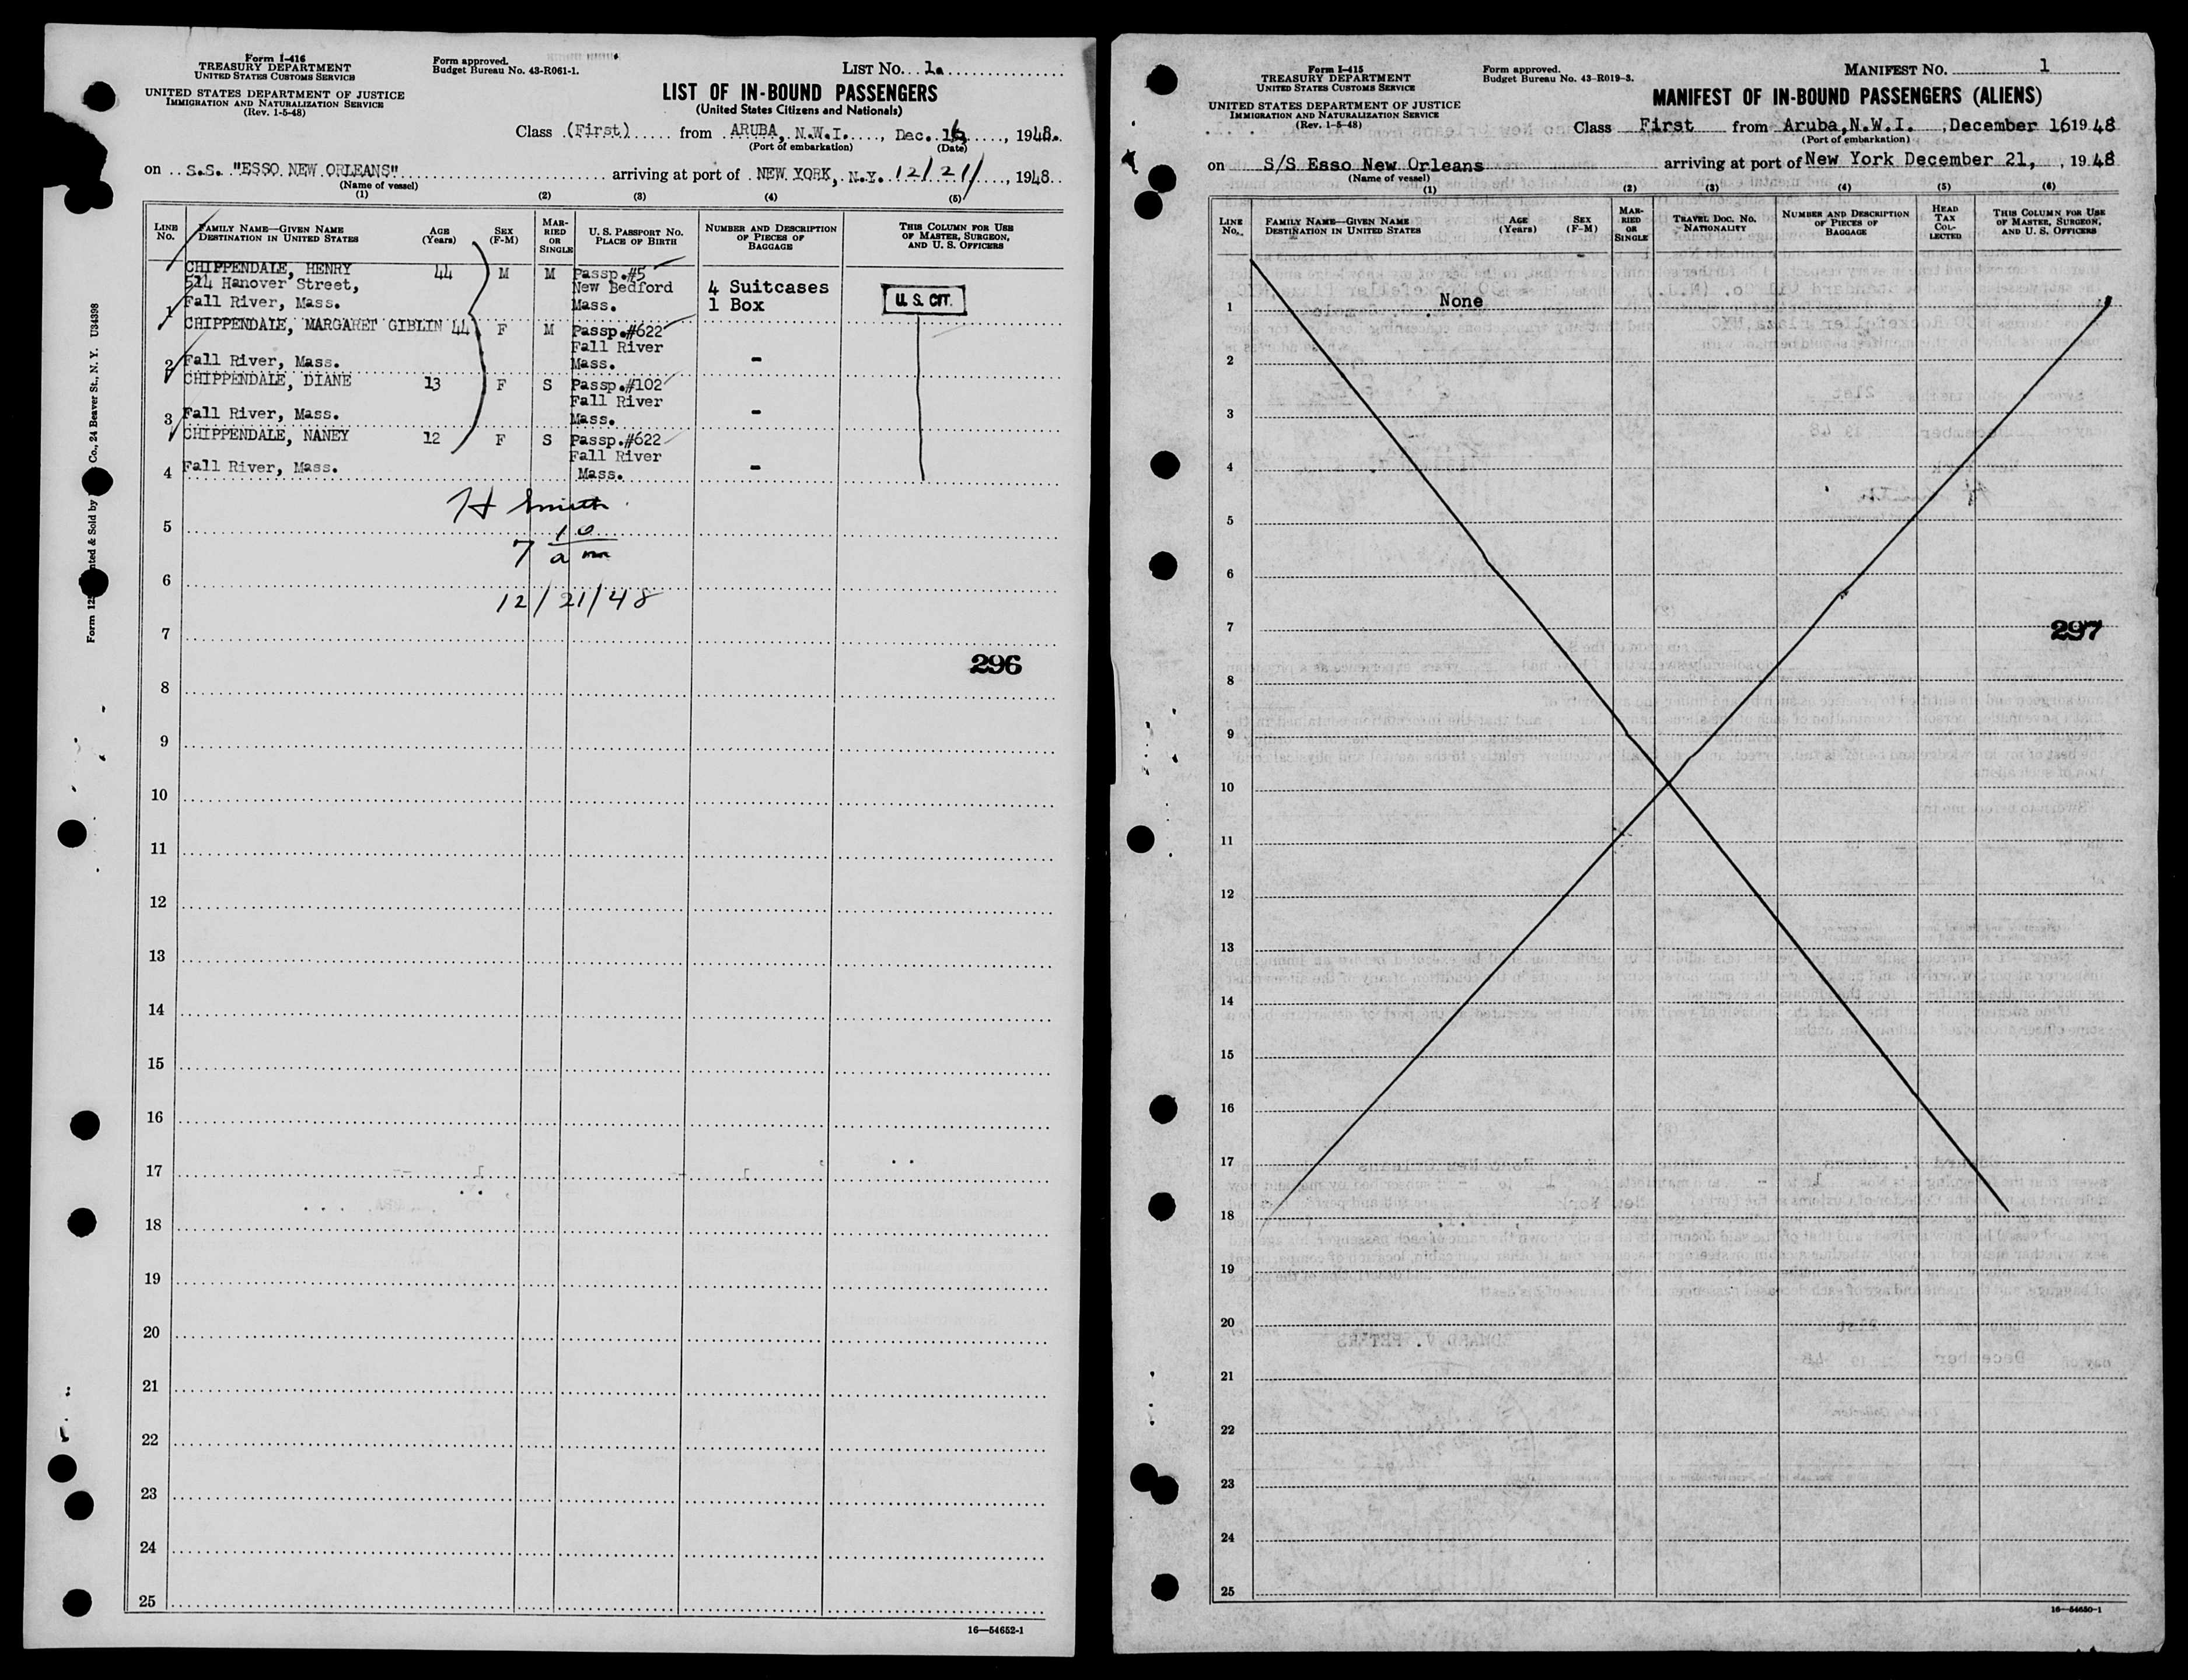 Form I-416
TREASURY DEPARTMENT
UNITED STATES CUSTOMS SERVICE
UNITED STATES DEPARTMENT OF JUSTICE
IMMIGRATION AND NATURALIZATION SERVICE
(Rev. 1-5-48)
Form approved.
Budget Bureau No. 43-R061-1.
LIST NO. 1a
LIST OF IN-BOUND PASSENGERS
(United States Citizens and Nationals)
Class (First) from ARUBA, N.W.I., Dec. 16, 1948.
(Port of embarkation) (Date)
on S.S. "ESSO NEW ORLEANS" arriving at port of NEW YORK, N.Y. 12/21/, 1948
(Name of vessel)
(1) (2) (3) (4) (5)
LINE NO. FAMILY NAME—GIVEN NAME DESTINATION IN UNITED STATES AGE (Years) SEX (F-M) MARRIED OR SINGLE U. S. PASSPORT NO. PLACE OF BIRTH NUMBER AND DESCRIPTION OF PIECES OF BAGGAGE THIS COLUMN FOR USE OF MASTER, SURGEON, AND U. S. OFFICERS
CHIPPENDALE, HENRY 44 M M Passp.#5
514 Hanover Street, New Bedford 4 Suitcases
1 Fall River, Mass. Mass. 1 Box U. S. CIT.
CHIPPENDALE, MARGARET GIBLIN 44 F M Passp.#622
Fall River
2 Fall River, Mass. Mass. -
CHIPPENDALE, DIANE 13 F S Passp.#102
Fall River
3 Fall River, Mass. Mass. -
CHIPPENDALE, NANEY 12 F S Passp.#622
Fall River
4 Fall River, Mass. Mass. -
H Smith
5
7 10 am
6
12/21/48
7
296
8
9
10
11
12
13
14
15
16
17
18
19
20
21
22
23
24
25
16—54652-1
Co., 24 Beaver St., N. Y. U34398
Form I-415
TREASURY DEPARTMENT
UNITED STATES CUSTOMS SERVICE
UNITED STATES DEPARTMENT OF JUSTICE
IMMIGRATION AND NATURALIZATION SERVICE
(Rev. 1-5-48)
Form approved.
Budget Bureau No. 43-R019-3.
MANIFEST NO. 1
MANIFEST OF IN-BOUND PASSENGERS (ALIENS)
Class First from Aruba,N.W.I. , December 16 1948
(Port of embarkation)
on S/S Esso New Orleans arriving at port of New York December 21, , 1948
(Name of vessel)
(1) (2) (3) (4) (5) (6)
LINE NO. FAMILY NAME—GIVEN NAME DESTINATION IN UNITED STATES AGE (Years) SEX (F-M) MARRIED OR SINGLE TRAVEL DOC. NO. NATIONALITY NUMBER AND DESCRIPTION OF PIECES OF BAGGAGE HEAD TAX COLLECTED THIS COLUMN FOR USE OF MASTER, SURGEON, AND U. S. OFFICERS
1 None
2
3
4
5
6
7
297
8
9
10
11
12
13
14
15
16
17
18
19
20
21
22
23
24
25
16—54650-1